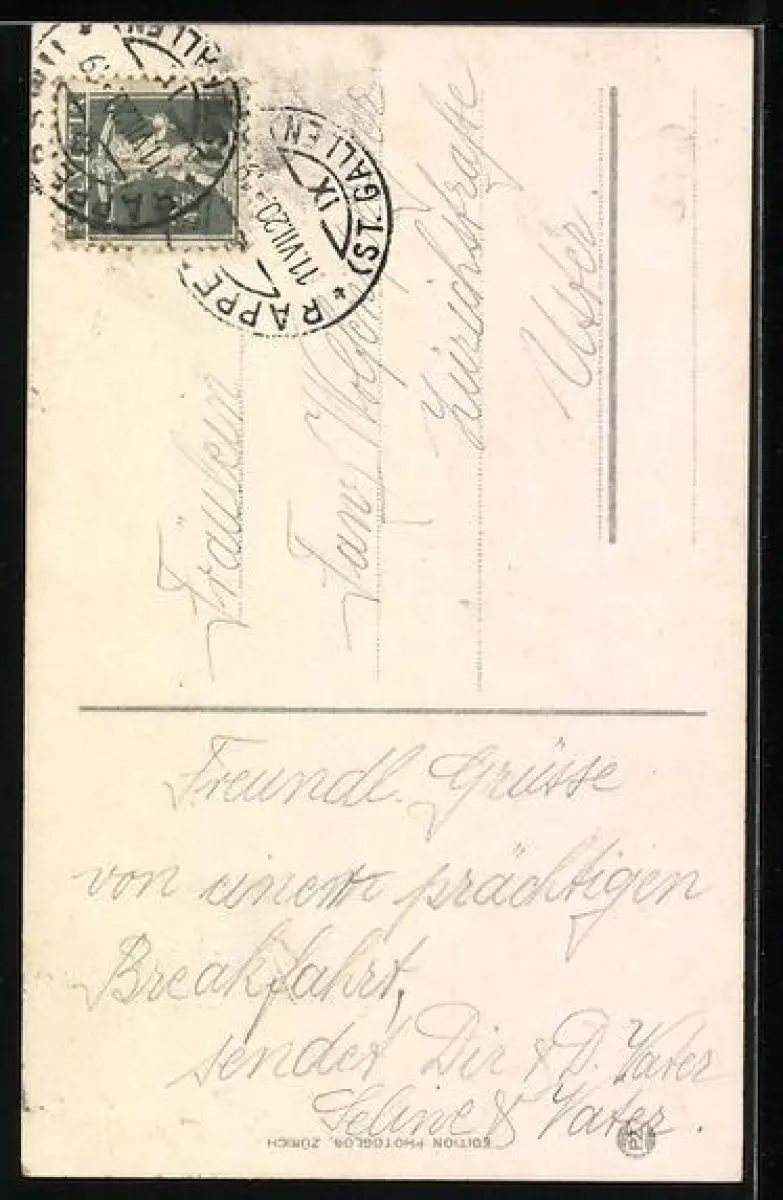 RAPPE
(ST. GALLEN)
11.VII.20
IX
Fräulein
Fany
Zürichstraße
Uster
Freundl. Grüsse
von einer prächtigen
Breakfahrt,
sendet Dir & D. Vater
Seline & Vater.
EDITION PHOTOGLOB, ZÜRICH